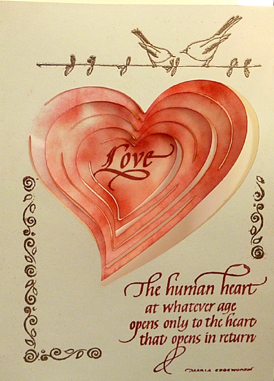 Love
The human heart
at whatever age
opens only to the heart
that opens in return
MARIA EDGEWORTH